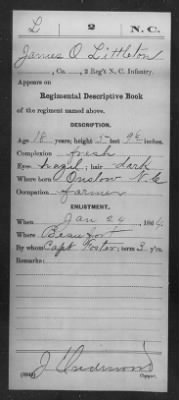 L 2 N.C.
James O Littleton
, Co. , 2 Reg't N. C. Infantry.
Appears on
Regimental Descriptive Book
of the regiment named above.
DESCRIPTION.
Age 18 years; height 5 feet inches.
Complexion fresh
Eyes hazel; hair dark
Where born Onslow N.C.
Occupation farmer
ENLISTMENT.
When Jan 24, 1864.
Where Beaufort
By whom Capt Foster; term 3 y'rs.
Remarks:
Copyist.